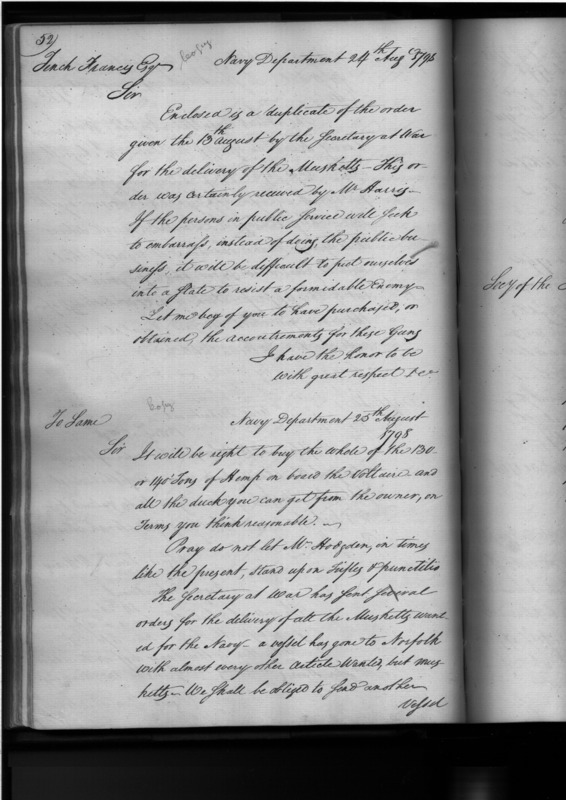 52)
Copy
Tench Francis Esqr
Navy Department 24th Aug 1798
Sir
Enclosed is a duplicate of the order
given the 13th august by the Secretary at War
for the delivery of the Musketts – This or-
der was certainly received by Mr Harris –
If the persons in public Service will seek
to embarrass, instead of doing the public bu-
siness, it will be difficult to put ourselves
into a state to resist a formidable Enemy –
Let me beg of you to have purchased, or
obtained, the accoutrements for these Guns
I have the honor to be
with great respect &c
Copy
To Same
Navy Department 25th August
1798
Sir
It will be right to buy the whole of the 130
or 140 Tons of Hemp on board the Voltaire and
all the duck you can get from the owner, on
Terms you think reasonable. –
Pray do not let Mr Hodgden, in times
like the present, stand upon Trifles & punctilio
The Secretary at War has sent several
orders for the delivery of all the Musketts want-
ed for the Navy – a vessel has gone to Norfolk
with almost every other article Wanted, but mus-
ketts – We shall be obliged to send another
Vessel
Secy of the